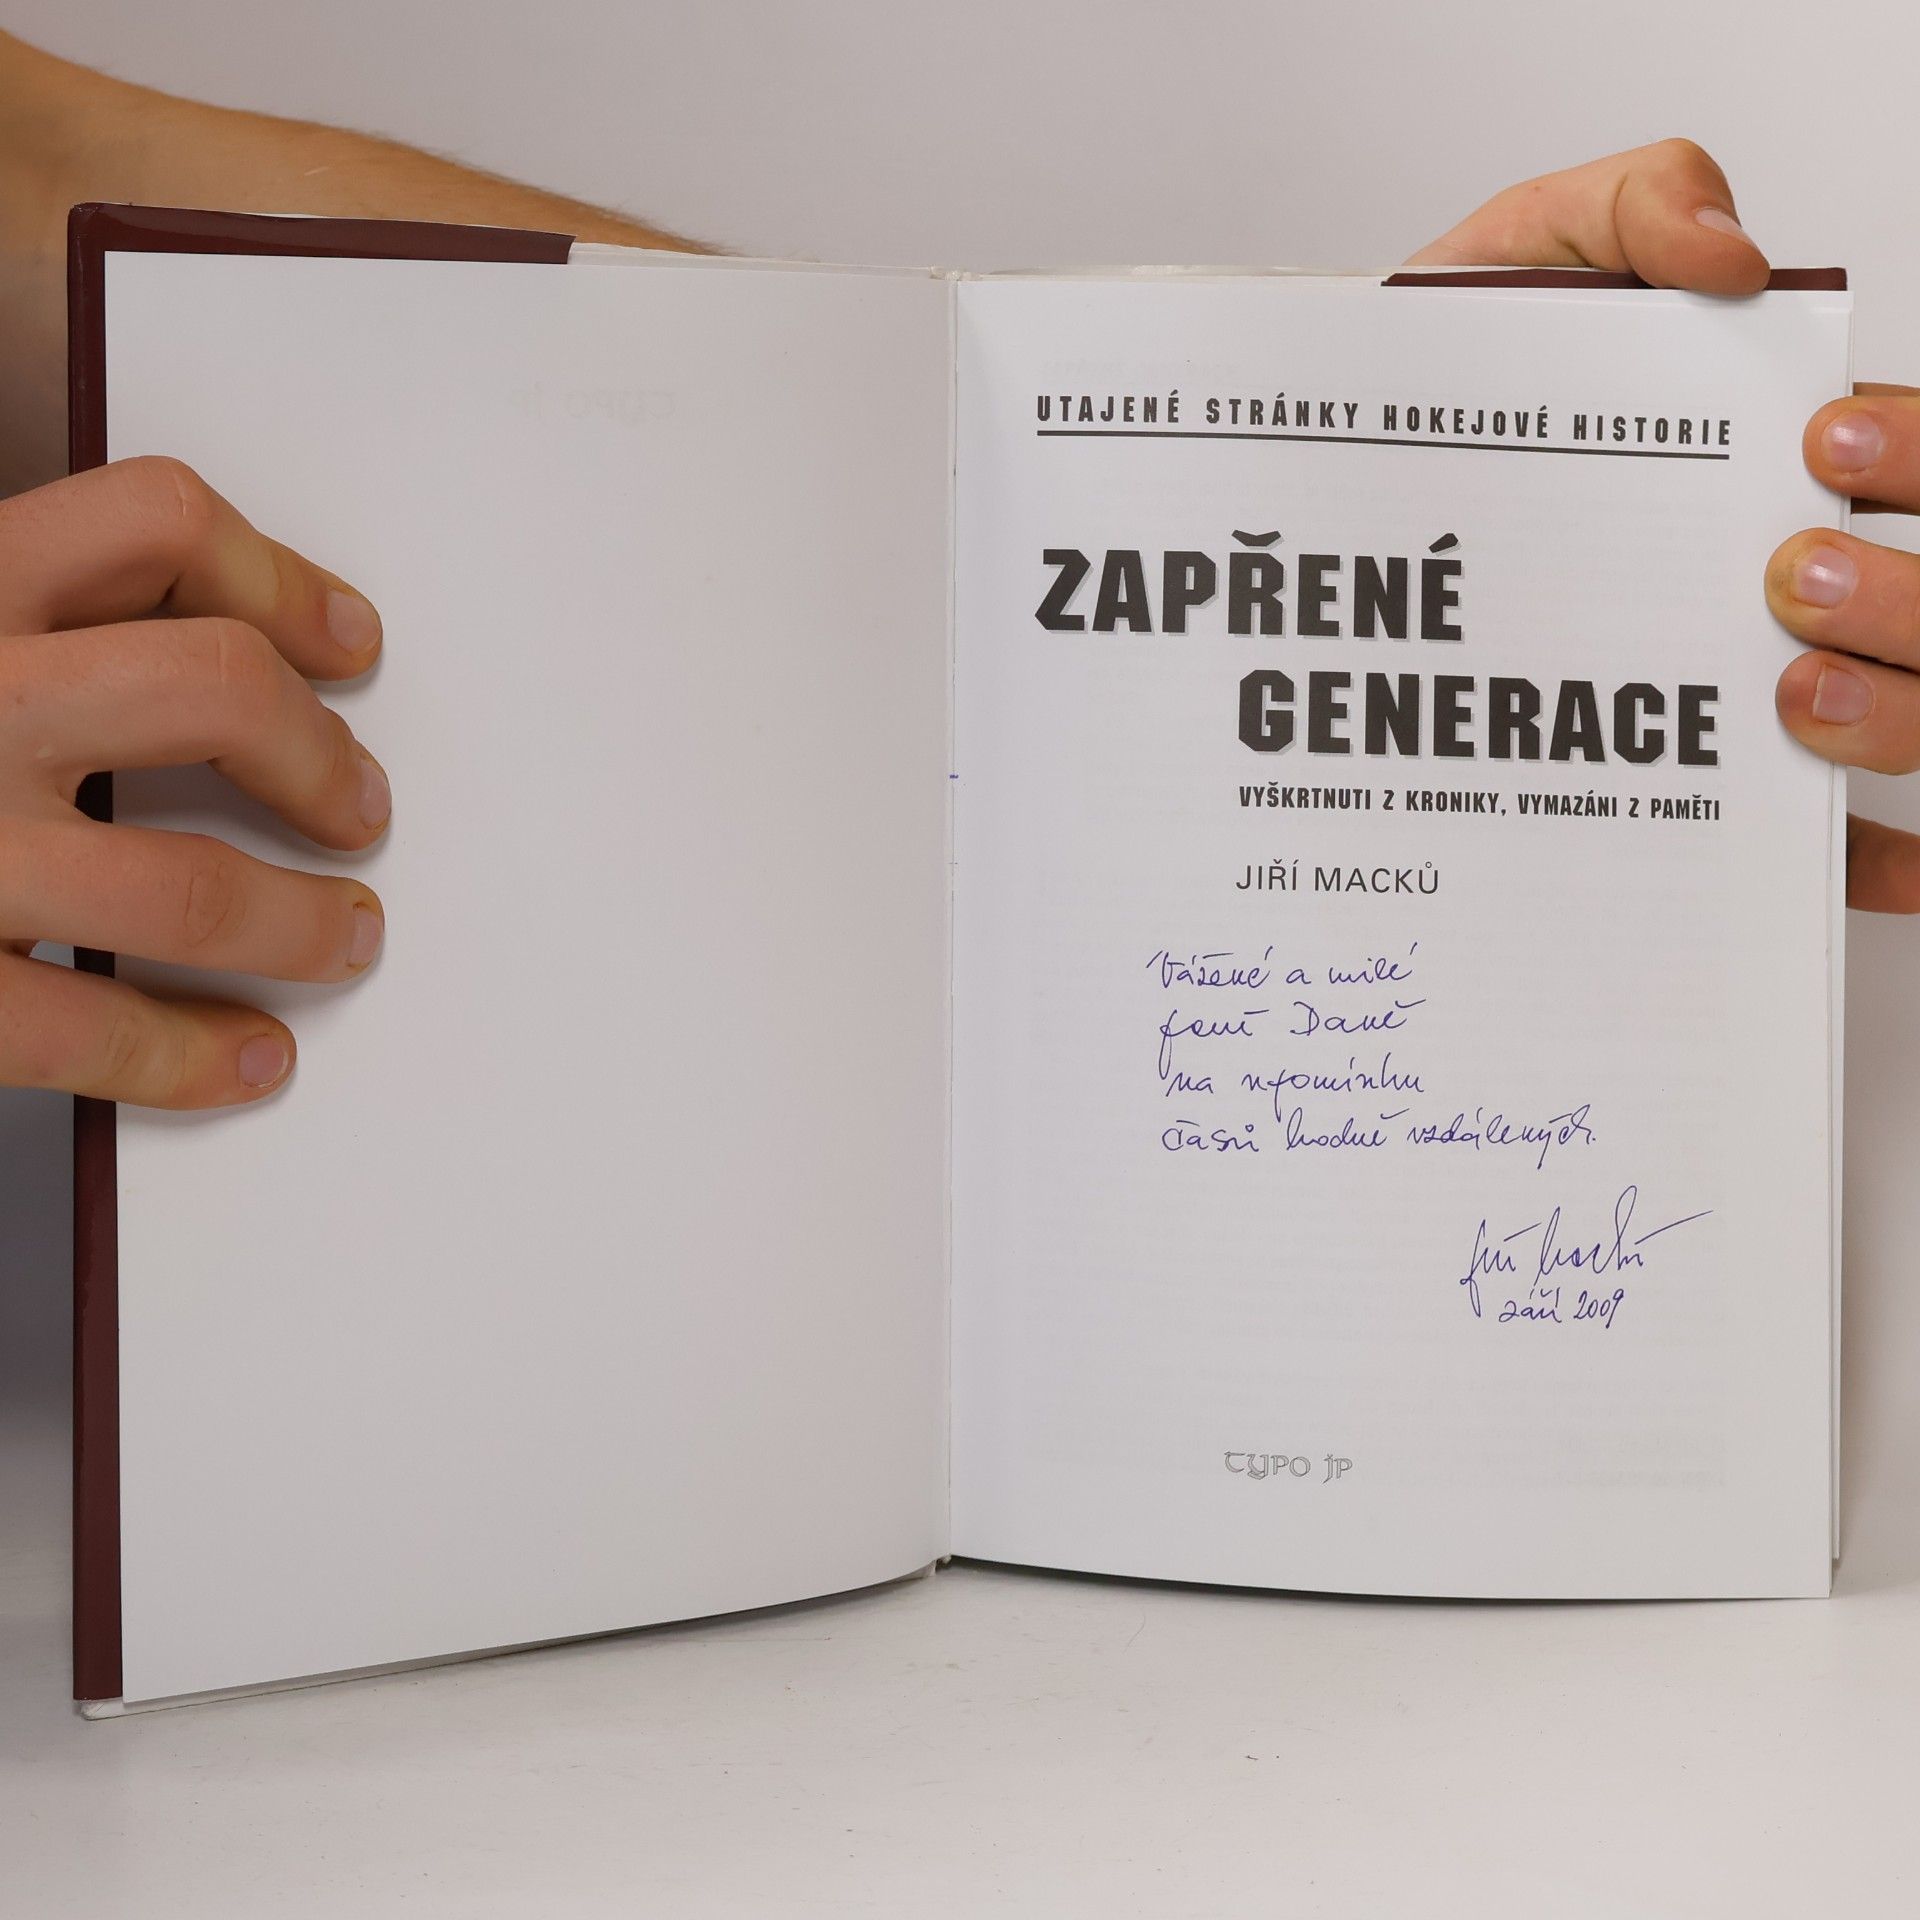 UTAJENÉ STRÁNKY HOKEJOVÉ HISTORIE
ZAPŘENÉ
GENERACE
VYŠKRTNUTI Z KRONIKY, VYMAZÁNI Z PAMĚTI
JIŘÍ MACKŮ
Vážené a milé
paní Daně
na vzpomínku
časů hodně vzdálených.
Jiří Macků
září 2009
TYPO JP